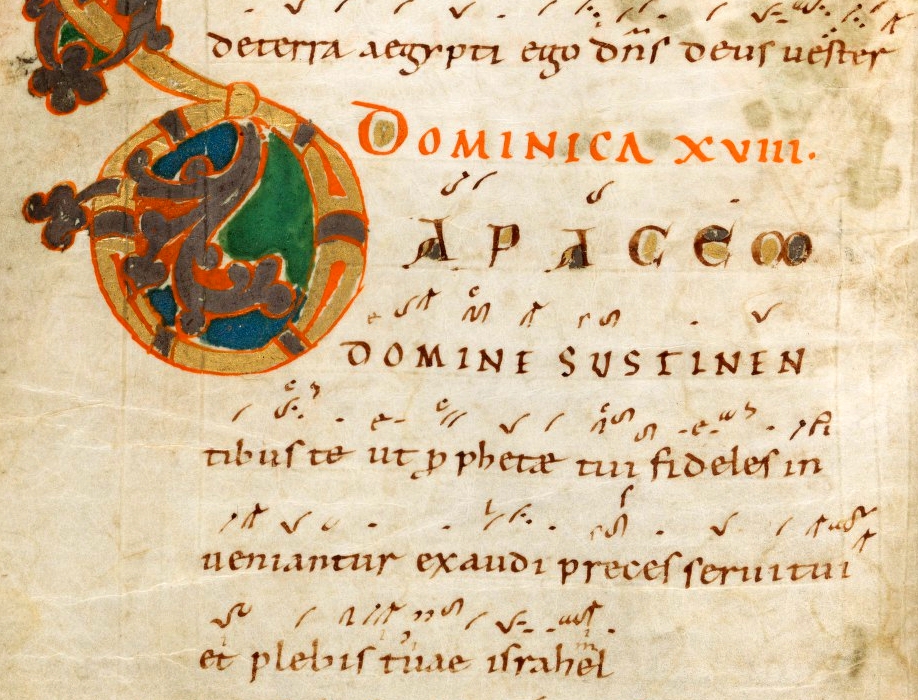 deterra aegypti ego dn̄s deus uester
DOMINICA XVIII.
DA PACEM
DOMINE SUSTINEN
tibus te ut ꝓphetae tui fideles in
ueniantur exaudi preces serui tui
et plebis tuae israhel